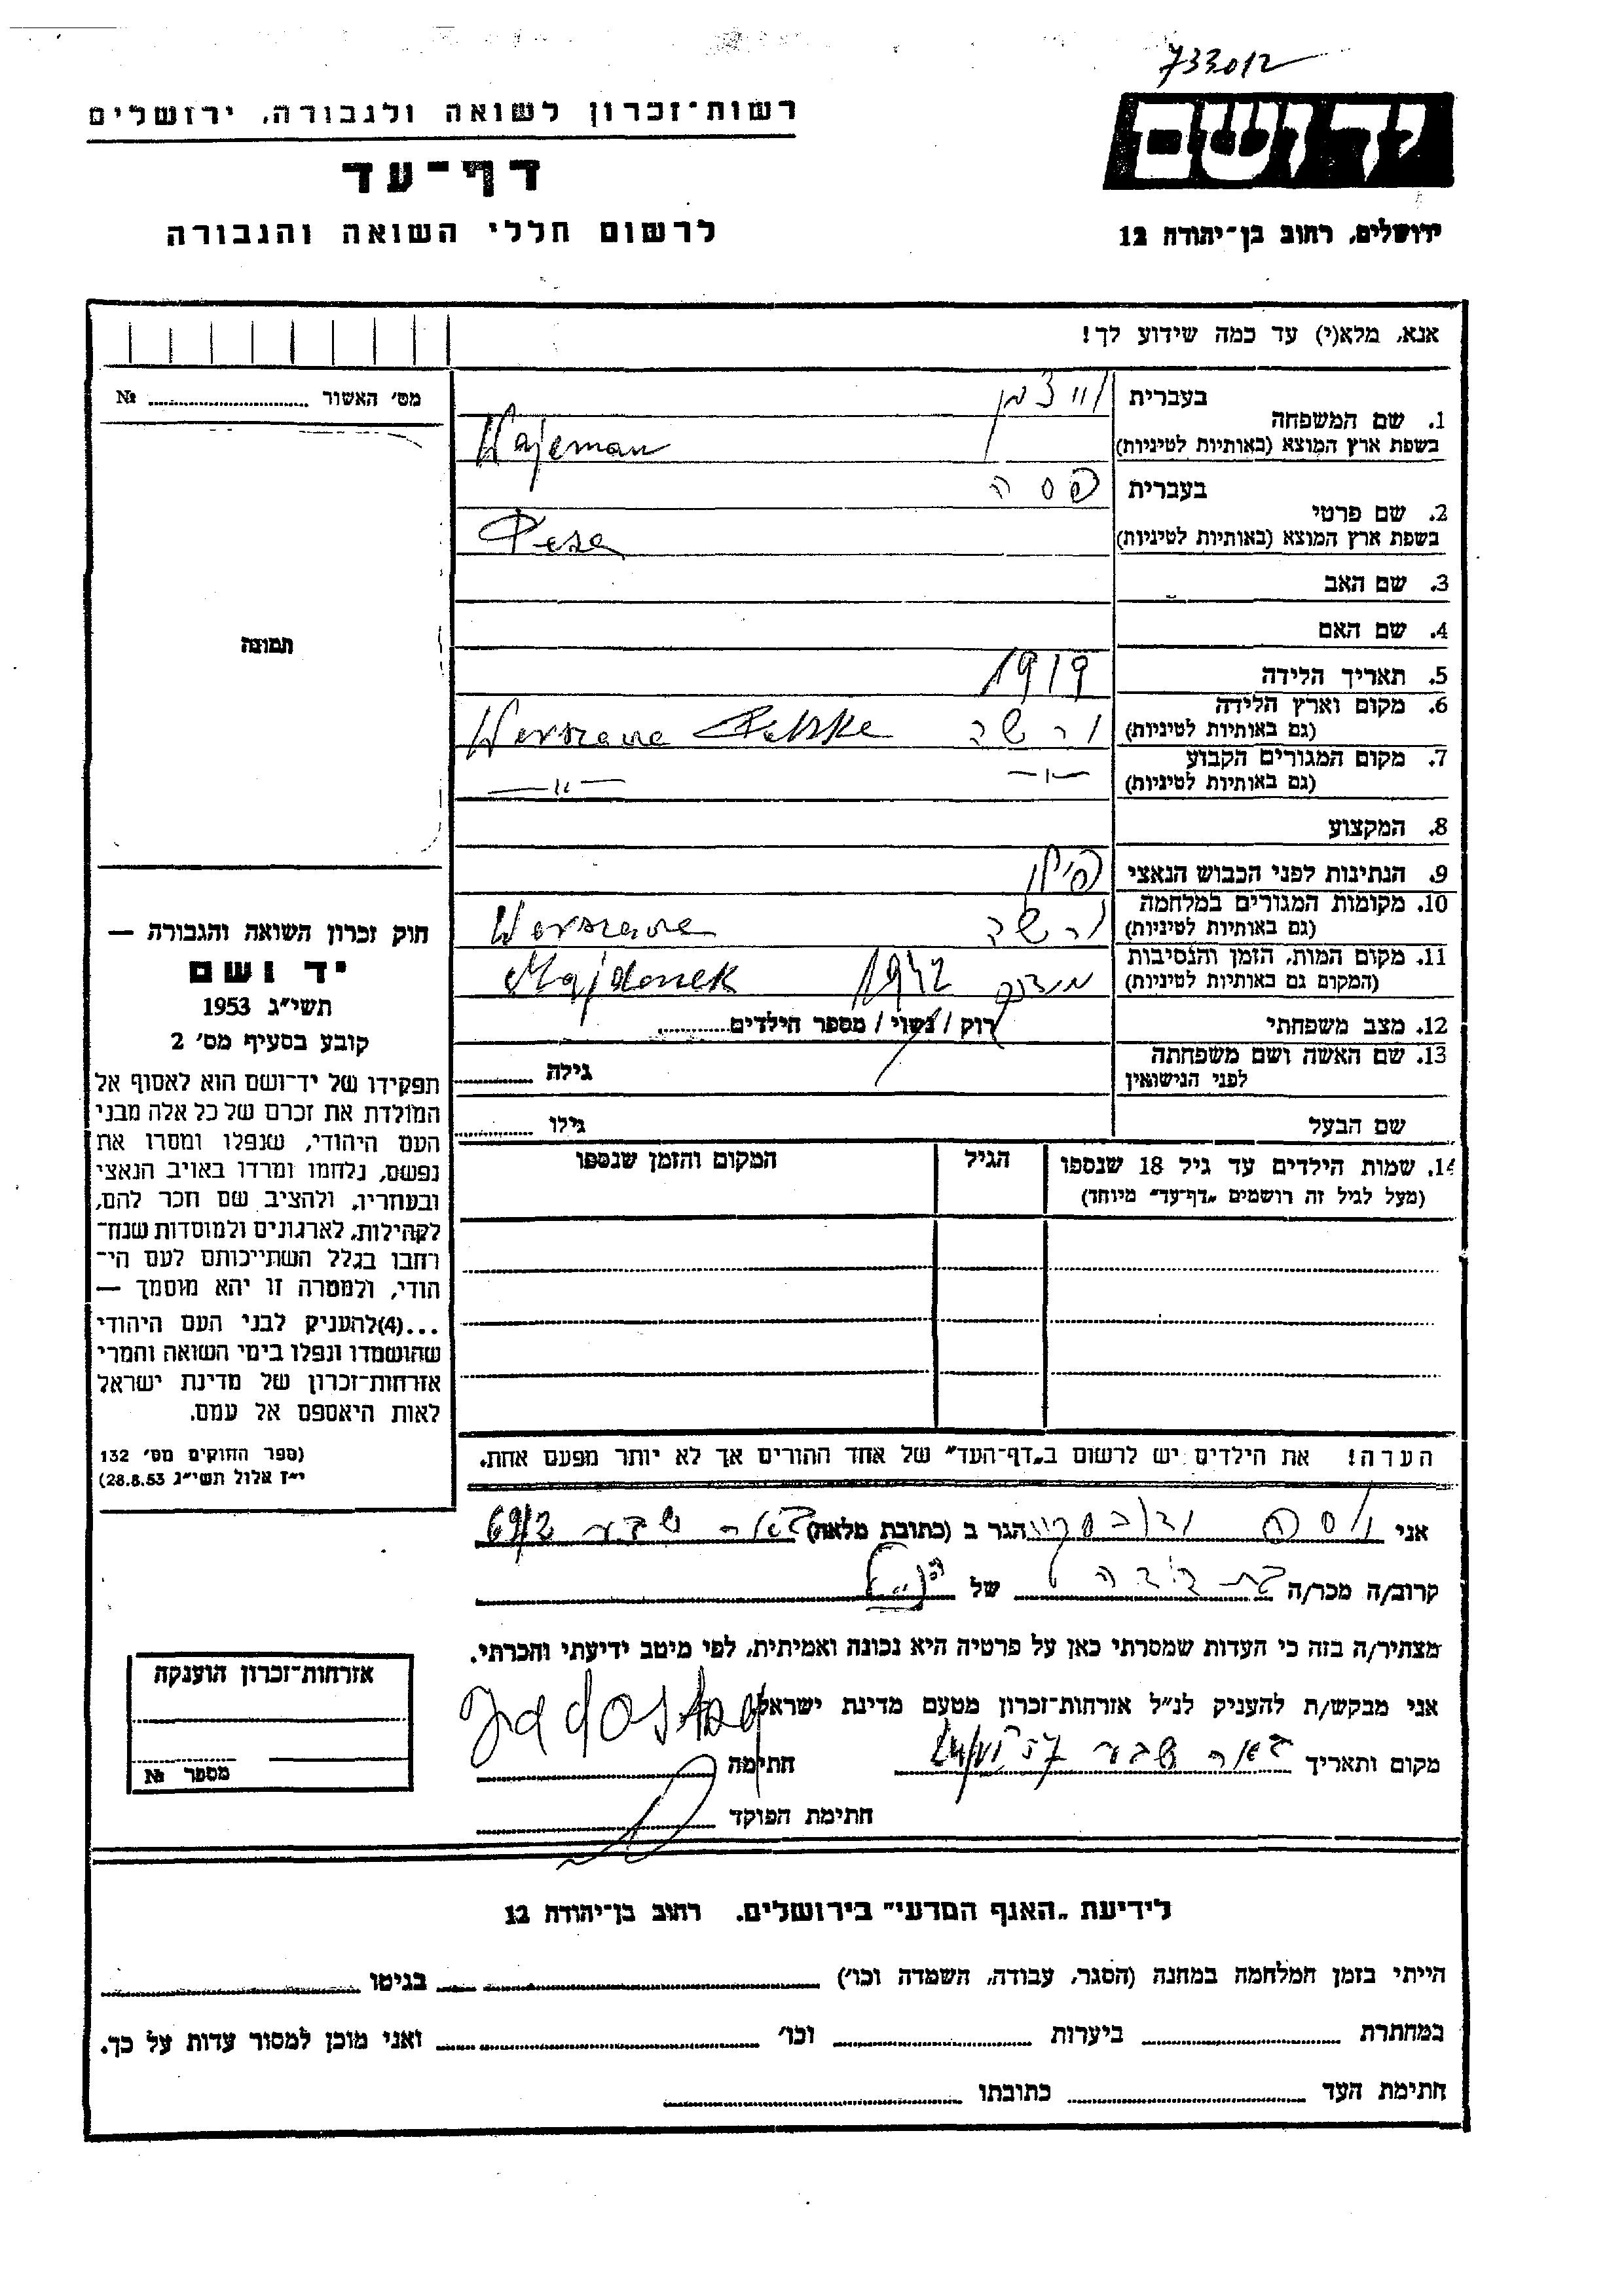 733012
יד ושם
ירושלים, רחוב בן־יהודה 12
רשות־זכרון לשואה ולגבורה, ירושלים
דף־עד
לרשום חללי השואה והגבורה
אנא, מלא(י) עד כמה שידוע לך!
1. שם המשפחה בעברית
בשפת ארץ המוצא (באותיות לטיניות) Wajeman
2. שם פרטי בעברית פסה
בשפת ארץ המוצא (באותיות לטיניות) Pesa
3. שם האב
4. שם האם
5. תאריך הלידה 1919
6. מקום וארץ הלידה ורשה Warszawa Polska
(גם באותיות לטיניות)
7. מקום המגורים הקבוע —"— —"—
(גם באותיות לטיניות)
8. המקצוע
9. הנתינות לפני הכבוש הנאצי פולין
10. מקומות המגורים במלחמה ורשה Warszawa
(גם באותיות לטיניות)
11. מקום המות, הזמן והנסיבות 1942 Majdanek
(המקום גם באותיות לטיניות)
12. מצב משפחתי רוק / נשוי / מספר הילדים
13. שם האשה ושם משפחתה גילה
לפני הנישואין
שם הבעל גילו
14. שמות הילדים עד גיל 18 שנספו הגיל המקום והזמן שנספו
(מעל לגיל זה רושמים „דף־עד" מיוחד)
הערה! את הילדים יש לרשום ב„דף־העד" של אחד ההורים אך לא יותר מפעם אחת.
מס׳ האשור № 
תמונה
חוק זכרון השואה והגבורה —
יד ושם
תשי״ג 1953
קובע בסעיף מס׳ 2
תפקידו של יד־ושם הוא לאסוף אל
המולדת את זכרם של כל אלה מבני
העם היהודי, שנפלו ומסרו את
נפשם, נלחמו ומרדו באויב הנאצי
ובעוזריו, ולהציב שם וזכר להם,
לקהילות, לארגונים ולמוסדות שנח־
רבו בגלל השתייכותם לעם הי־
הודי, ולמטרה זו יהא מוסמך —
...(4)להעניק לבני העם היהודי
שהושמדו ונפלו בימי השואה והמרי
אזרחות־זכרון של מדינת ישראל
לאות היאספם אל עמם.
(ספר החוקים מס׳ 132
י״ז אלול תשי״ג 28.8.53)
אני הגר ב (כתובת מלאה) באר שבע 69/2
קרוב/ה מכר/ה בת דודה של הנ״ל
מצהיר/ה בזה כי העדות שמסרתי כאן על פרטיה היא נכונה ואמיתית, לפי מיטב ידיעתי והכרתי.
אני מבקש/ת להעניק לנ״ל אזרחות־זכרון מטעם מדינת ישראל.
מקום ותאריך באר שבע חתימה
חתימת הפוקד
אזרחות־זכרון הוענקה
מספר №
לידיעת „האגף המדעי" בירושלים. רחוב בן־יהודה 12
הייתי בזמן המלחמה במחנה (הסגר, עבודה, השמדה וכו׳) בגיטו
במחתרת ביערות וכו׳ ואני מוכן למסור עדות על כך.
חתימת העד כתובתו